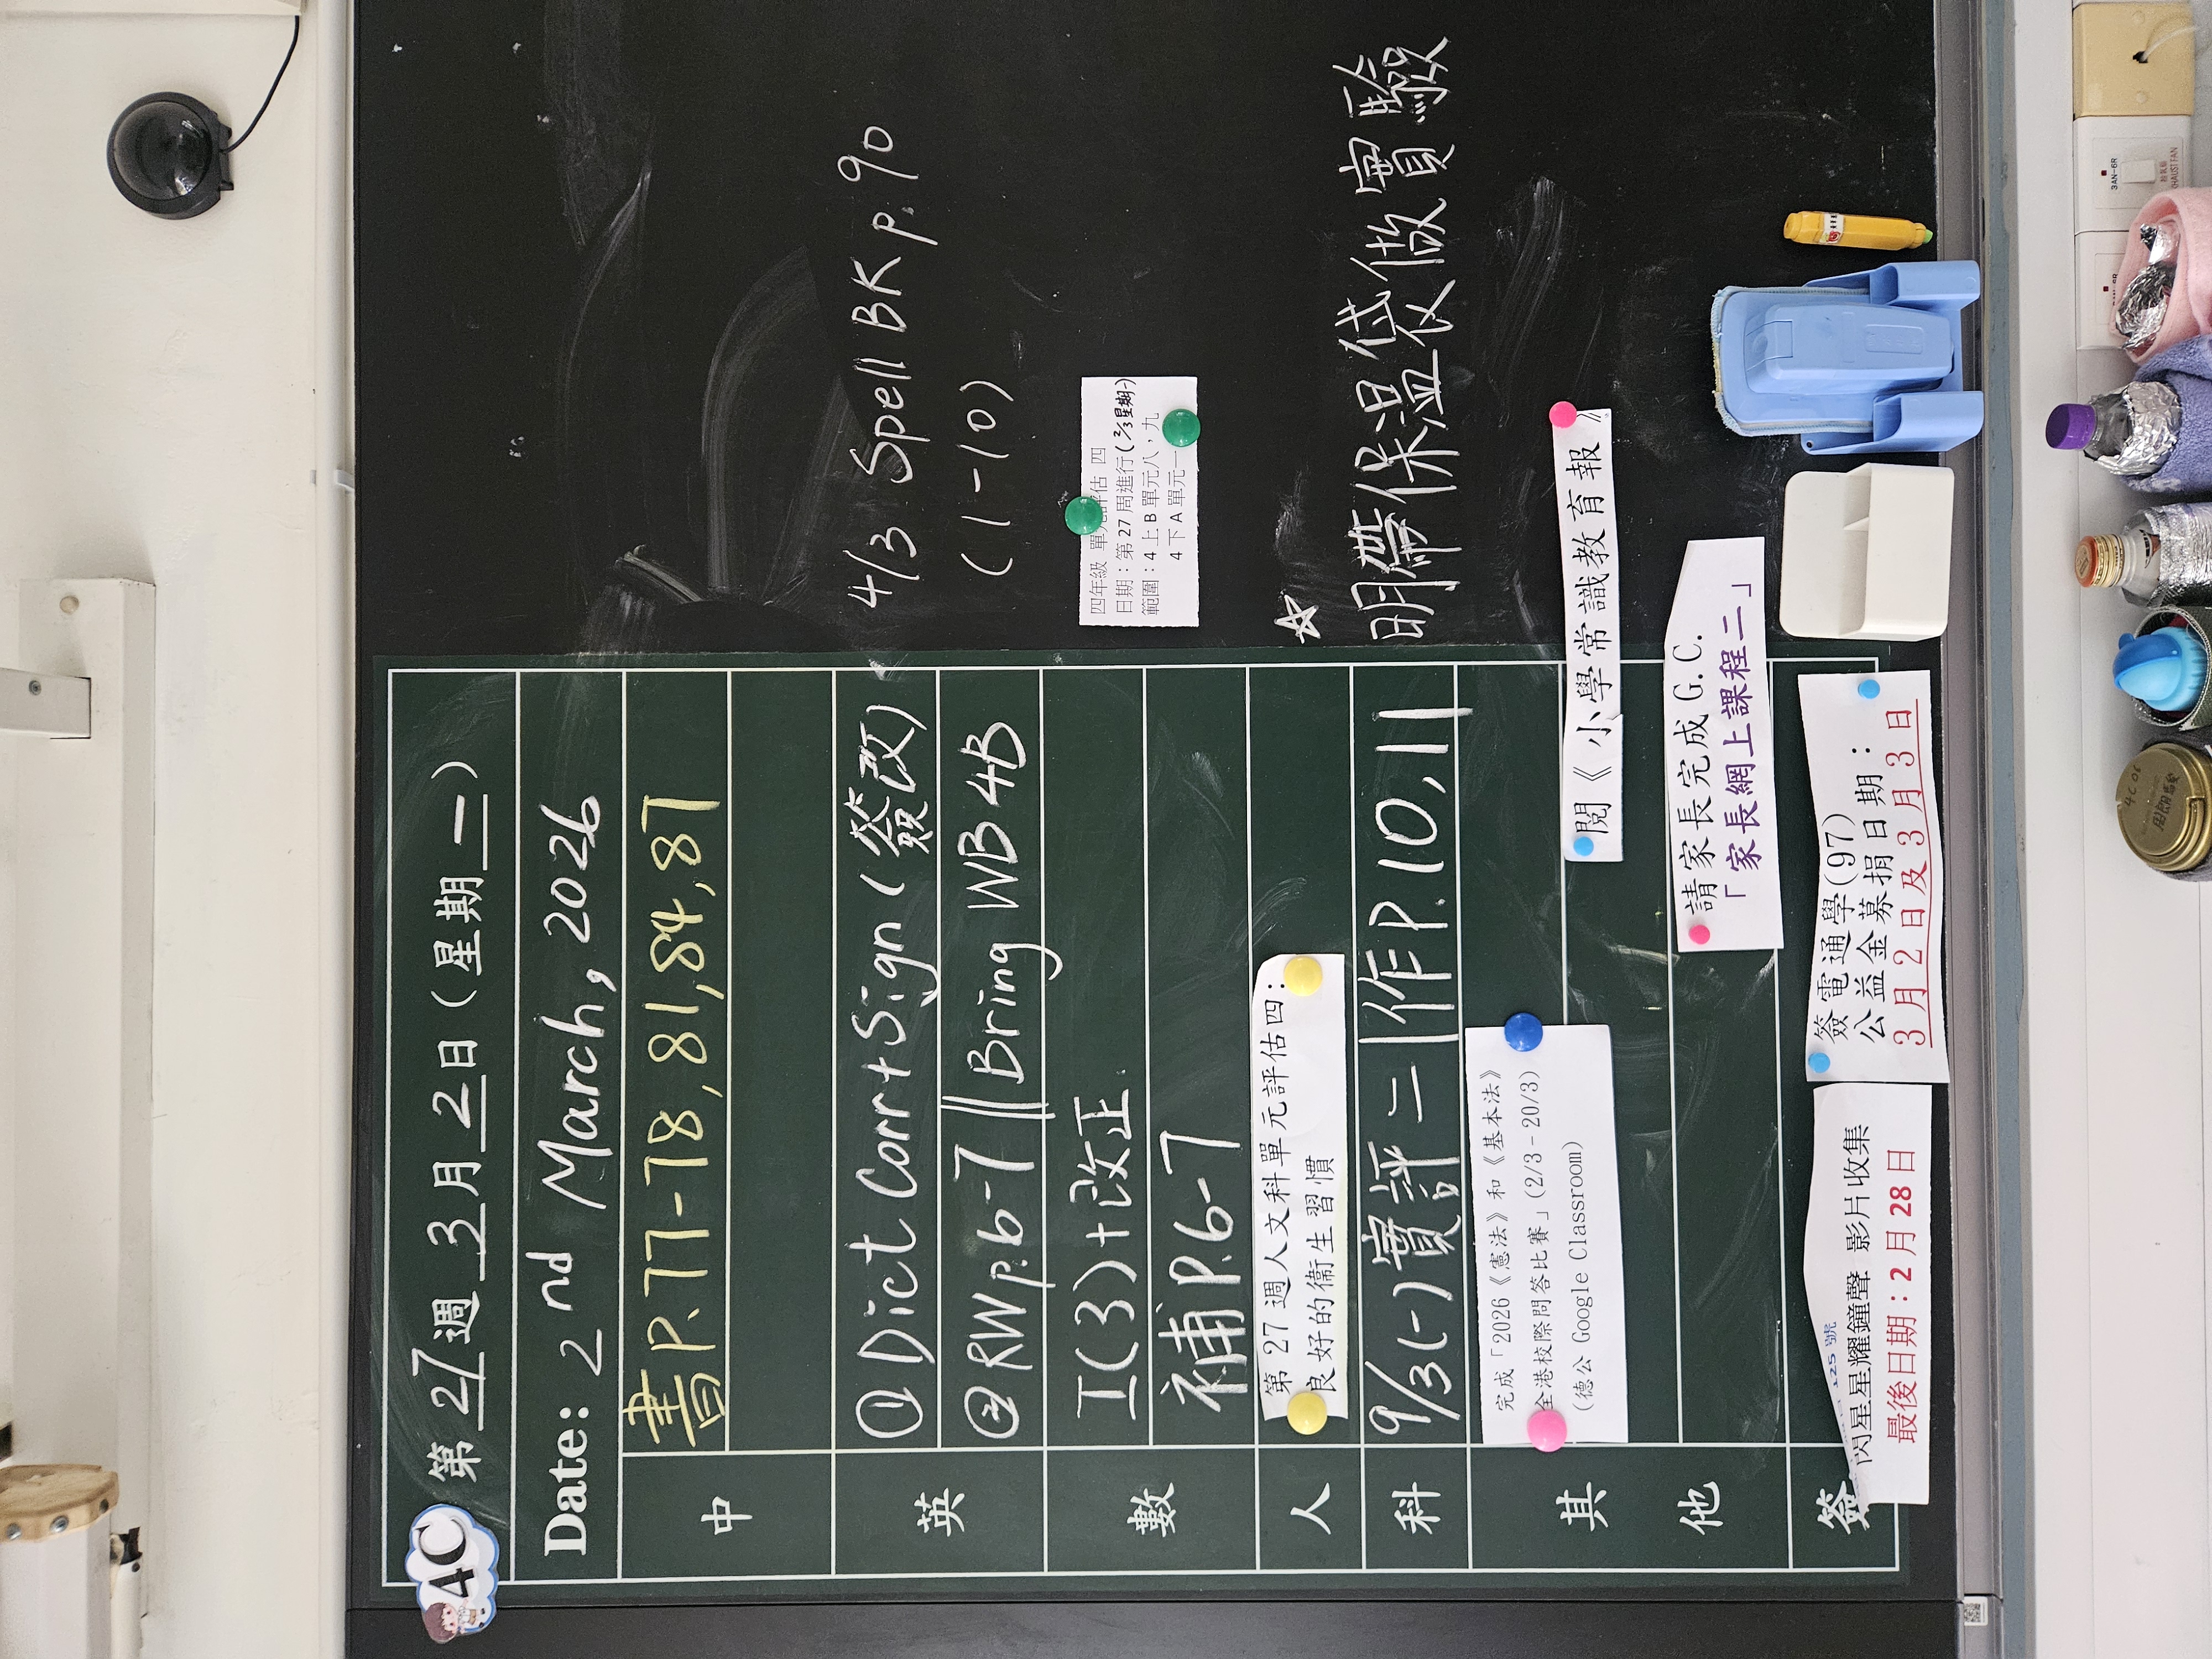 4C
第 27 週 3 月 2 日 ( 星期 一 )
Date: 2nd March, 2026
中
書P.77-78,81,84,87
英
① Dict Corr+Sign (簽改)
② RW p.6-7 || Bring WB 4B
4/3 Spell BK p.90
(1-10)
數
工(3)+改正
補P.6-7
四年級 單元評估 四
日期：第 27 周進行(2/3 星期一)
範圍：4 上 B 單元八，九
4 下 A 單元一
人
第 27 週人文科單元評估四：
良好的衞生習慣
科
9/3(一)實評二|作P.10,11
☆
明帶保溫袋做實驗
其他
完成「2026《憲法》和《基本法》
全港校際問答比賽」(2/3-20/3)
(德公 Google Classroom)
閱《小學常識教育報》
請家長完成 G.C.
「家長網上課程二」
簽
125 號
閃星星耀鐘聲 影片收集
最後日期：2 月 28 日
簽電通學(97)
公益金募捐日期：
3 月 2 日及 3 月 3 日
3AN-6R
抽氣扇
EXHAUST FAN
4C06